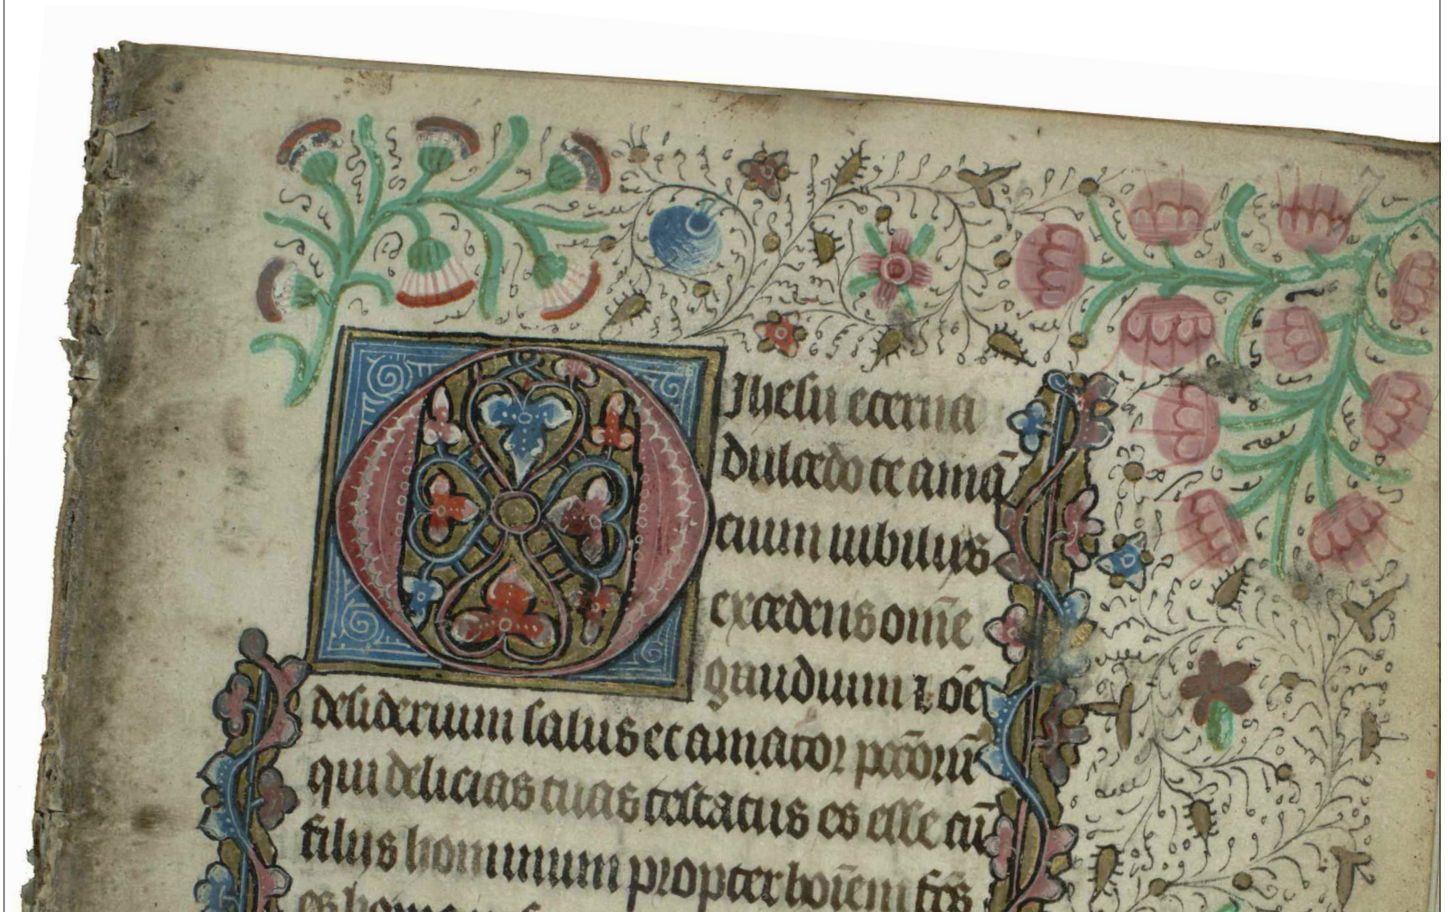 O Jhesu eterna
dulcedo te amā
cium iubilus
excedens om̄e
gaudium ⁊ ōē
desiderium salus et amator pctōrū
qui delicias tuas testatus es esse cū
filiis hominum propter hoīem
es homo